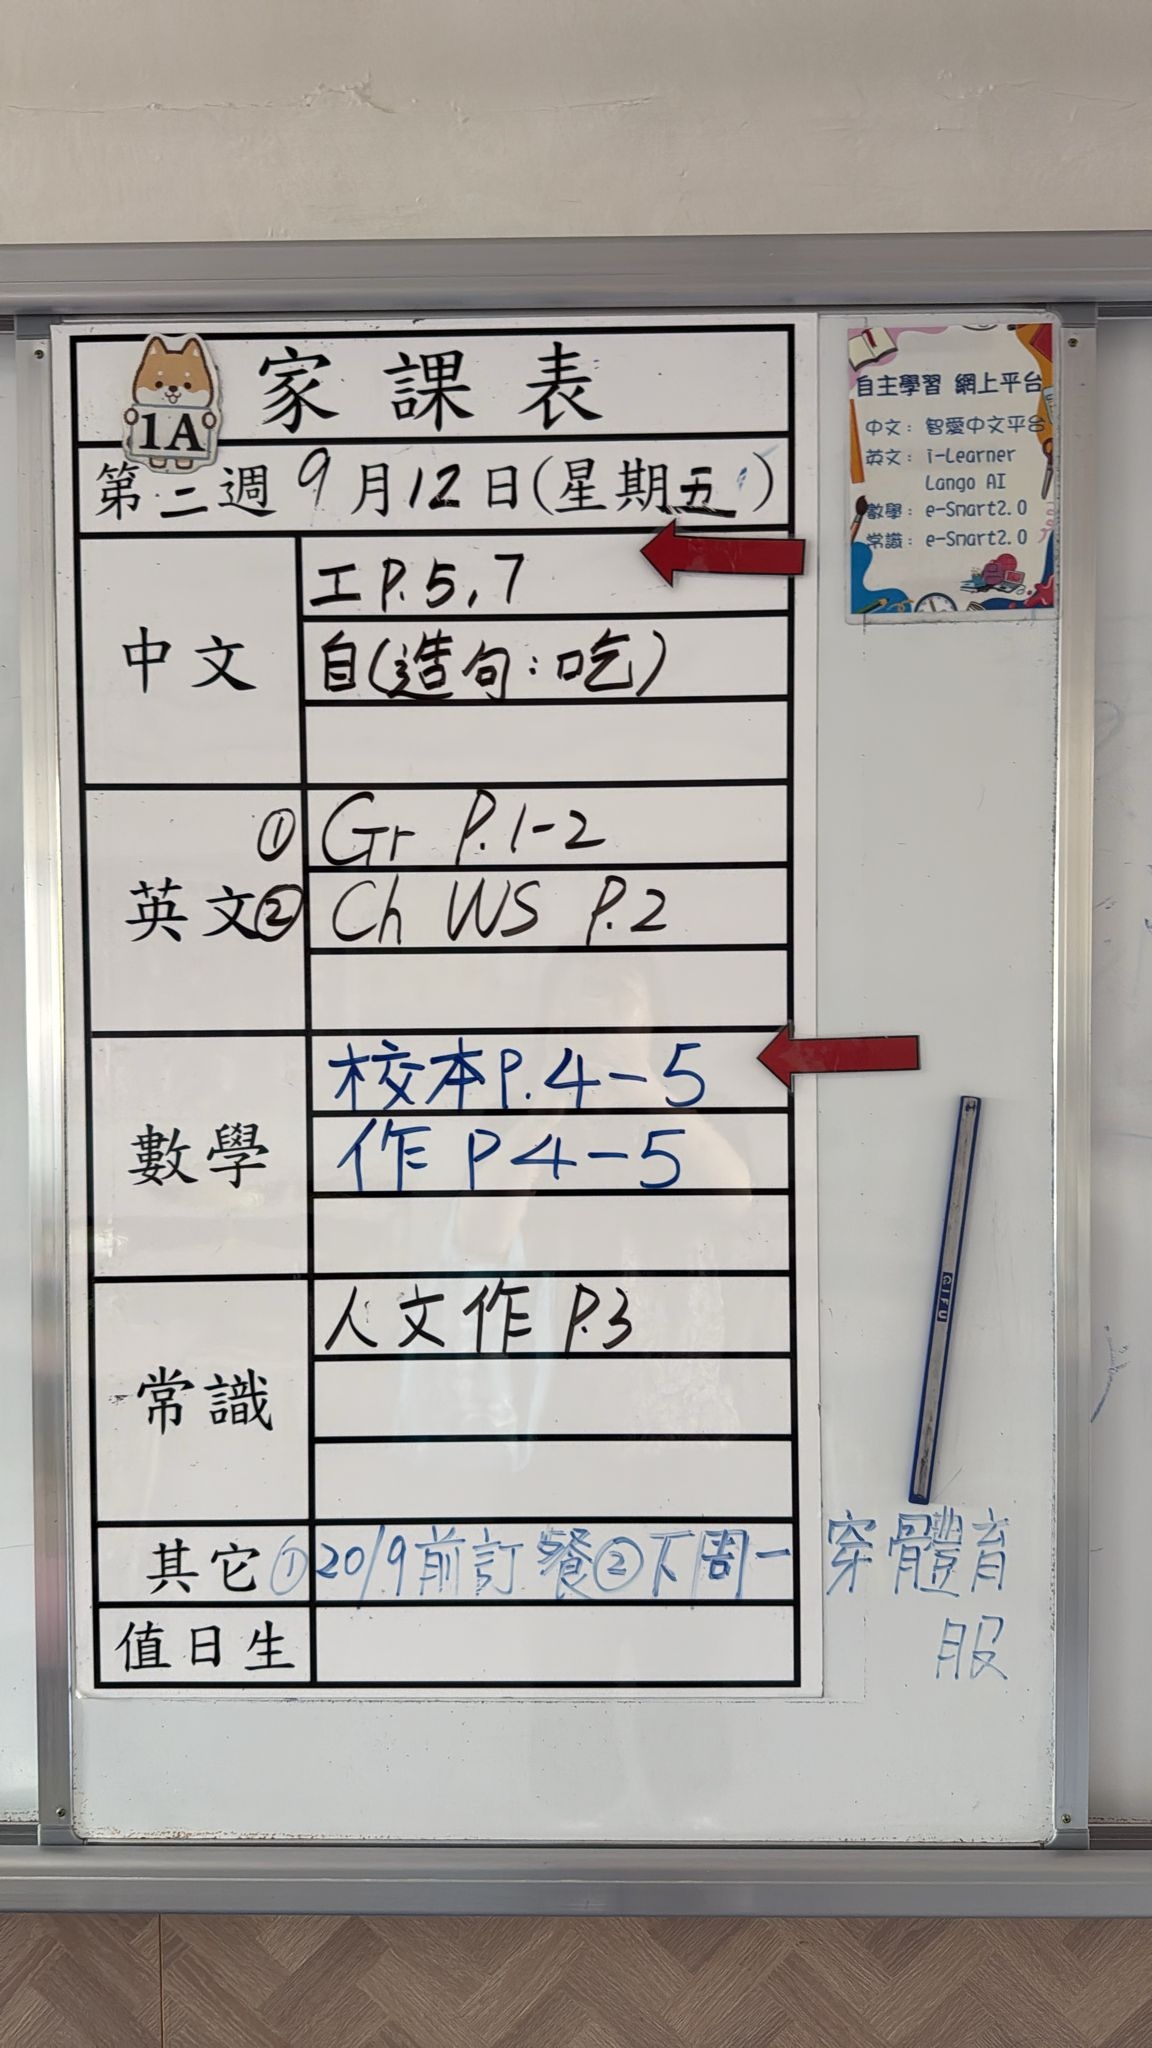 家課表
1A
第二週 9月12日(星期五)
中文
工P.5,7
自(造句:吃)
英文
① Gr P.1-2
② Ch WS P.2
數學
校本P.4-5
作 P4-5
常識
人文作 P.3
其它
①20/9前訂餐②下周一穿體育
服
值日生
自主學習 網上平台
中文：智愛中文平台
英文：i-Learner
Lango AI
數學：e-Smart2.0
常識：e-Smart2.0
QIFU